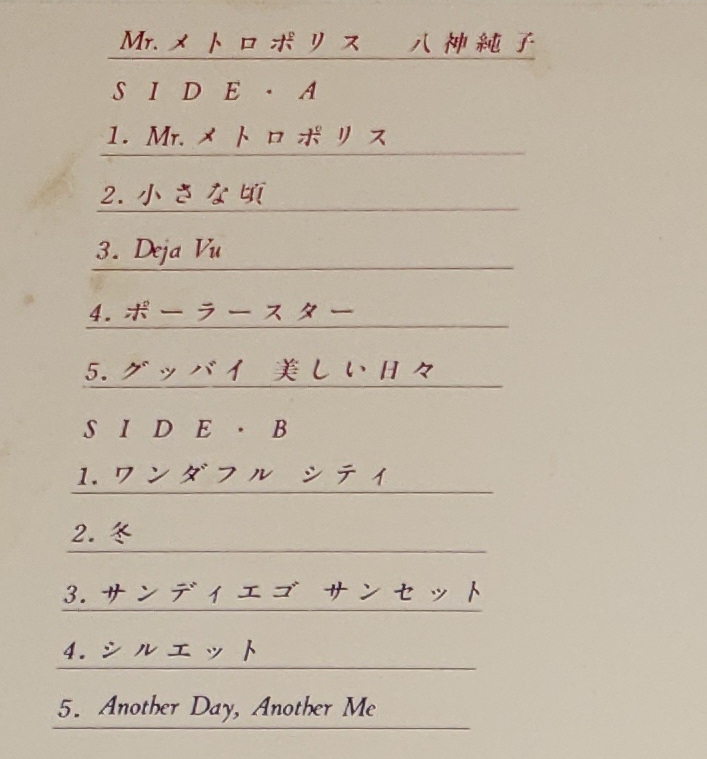 Mr. メトロポリス 八神純子
SIDE・A
1. Mr. メトロポリス
2. 小さな頃
3. Deja Vu
4. ポーラースター
5. グッバイ 美しい日々
SIDE・B
1. ワンダフル シティ
2. 冬
3. サンディエゴ サンセット
4. シルエット
5. Another Day, Another Me